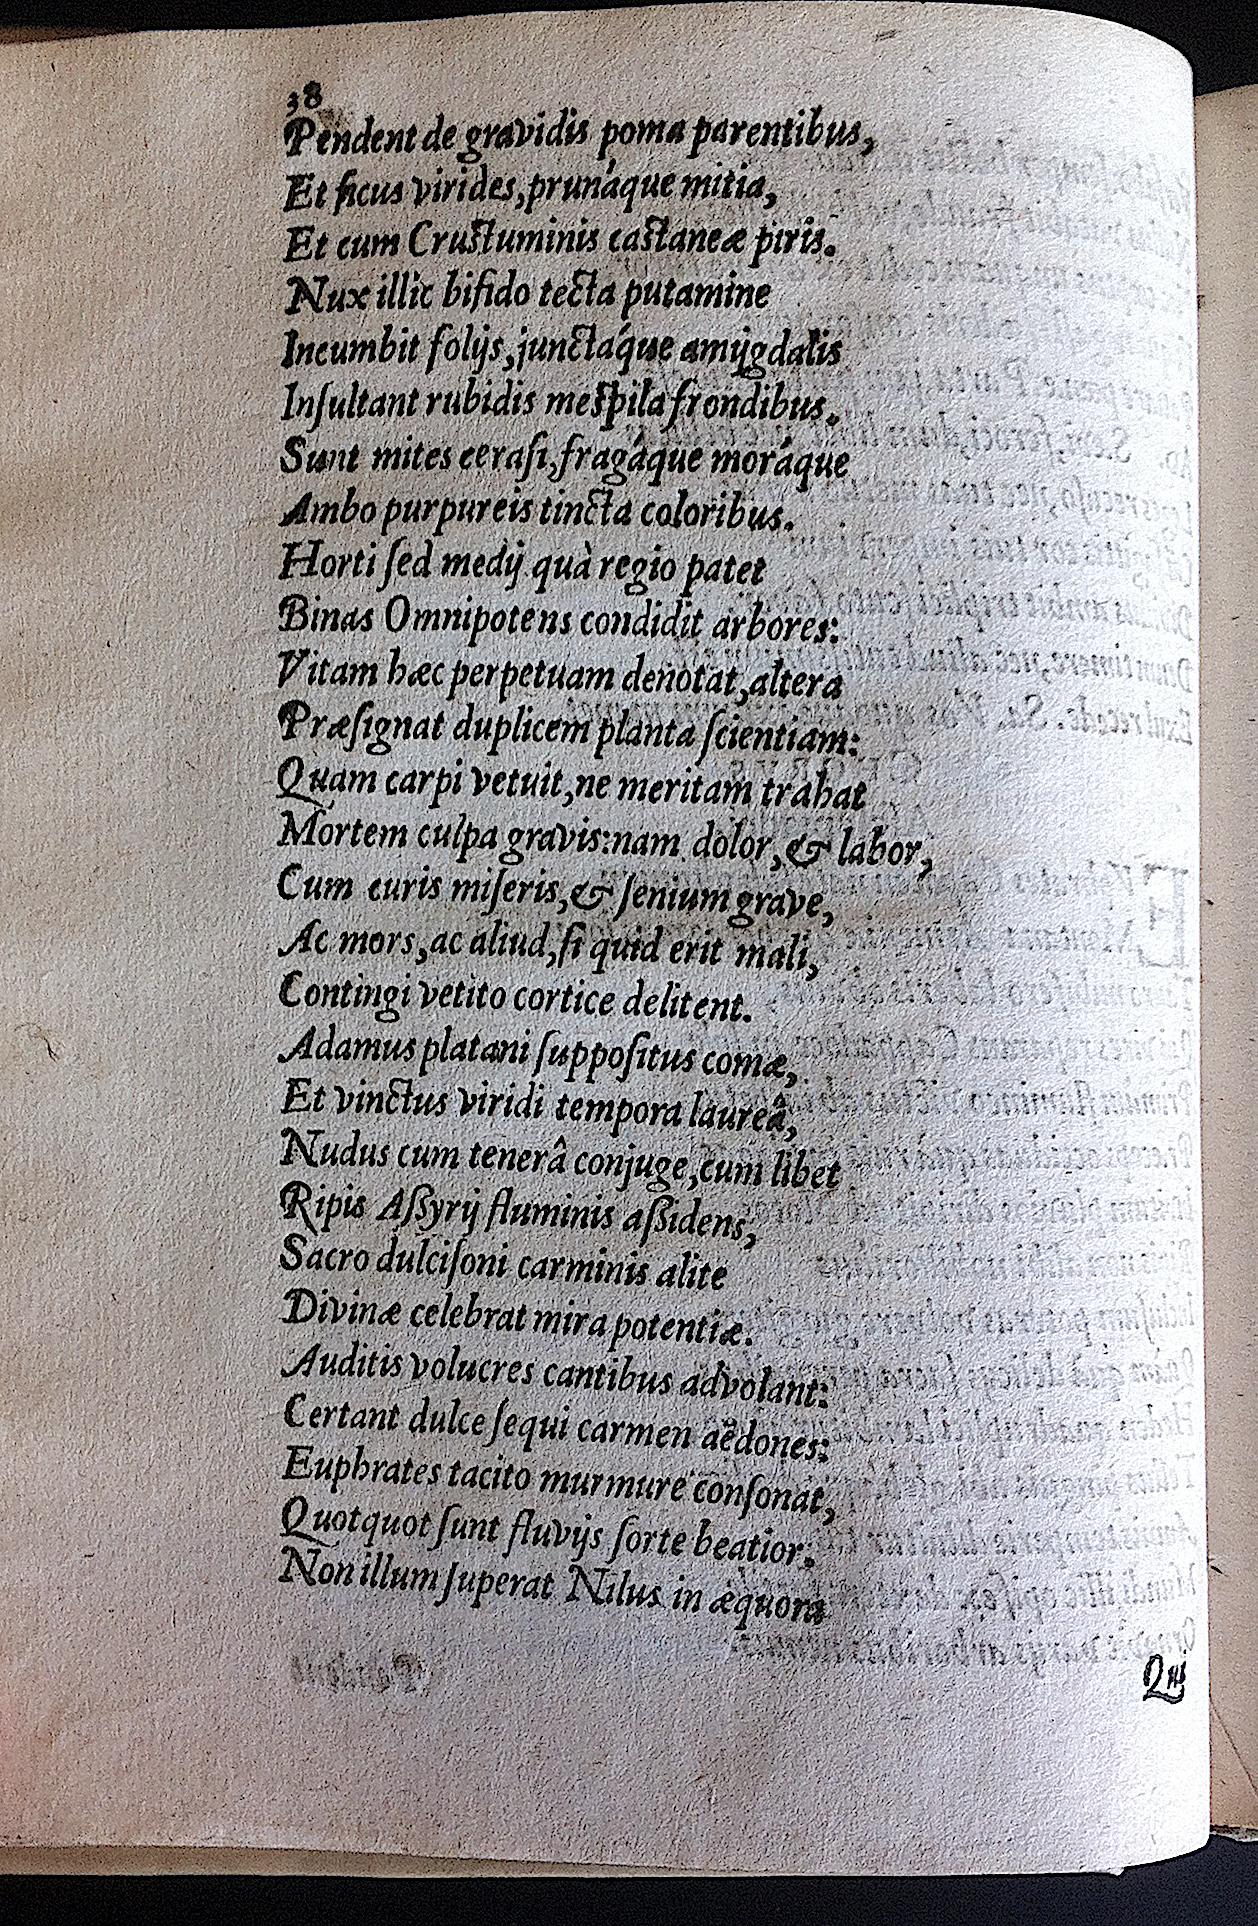 38
Pendent de gravidis poma parentibus,
Et ficus virides, prunáque mitia,
Et cum Crustuminis castaneæ piris.
Nux illic bifido tecta putamine
Incumbit folijs, junctáque amijgdalis
Inſultant rubidis meſpila frondibus.
Sunt mites ceraſi, fragáque moráque
Ambo purpureis tincta coloribus.
Horti ſed medij quà regio patet
Binas Omnipotens condidit arbores:
Vitam hæc perpetuam denotat, altera
Præſignat duplicem planta ſcientiam:
Quam carpi vetuit, ne meritam trahat
Mortem culpa gravis: nam dolor, & labor,
Cum curis miſeris, & ſenium grave,
Ac mors, ac aliud, ſi quid erit mali,
Contingi vetito cortice delitent.
Adamus platani ſuppoſitus comæ,
Et vinctus viridi tempora laureâ,
Nudus cum tenerâ conjuge, cum libet
Ripis Aſſyrij fluminis aſſidens,
Sacro dulciſoni carminis alite
Divinæ celebrat mira potentiæ.
Auditis volucres cantibus advolant:
Certant dulce ſequi carmen aëdones:
Euphrates tacito murmure conſonat,
Quotquot ſunt fluvijs ſorte beatior:
Non illum ſuperat Nilus in æquora
Qui